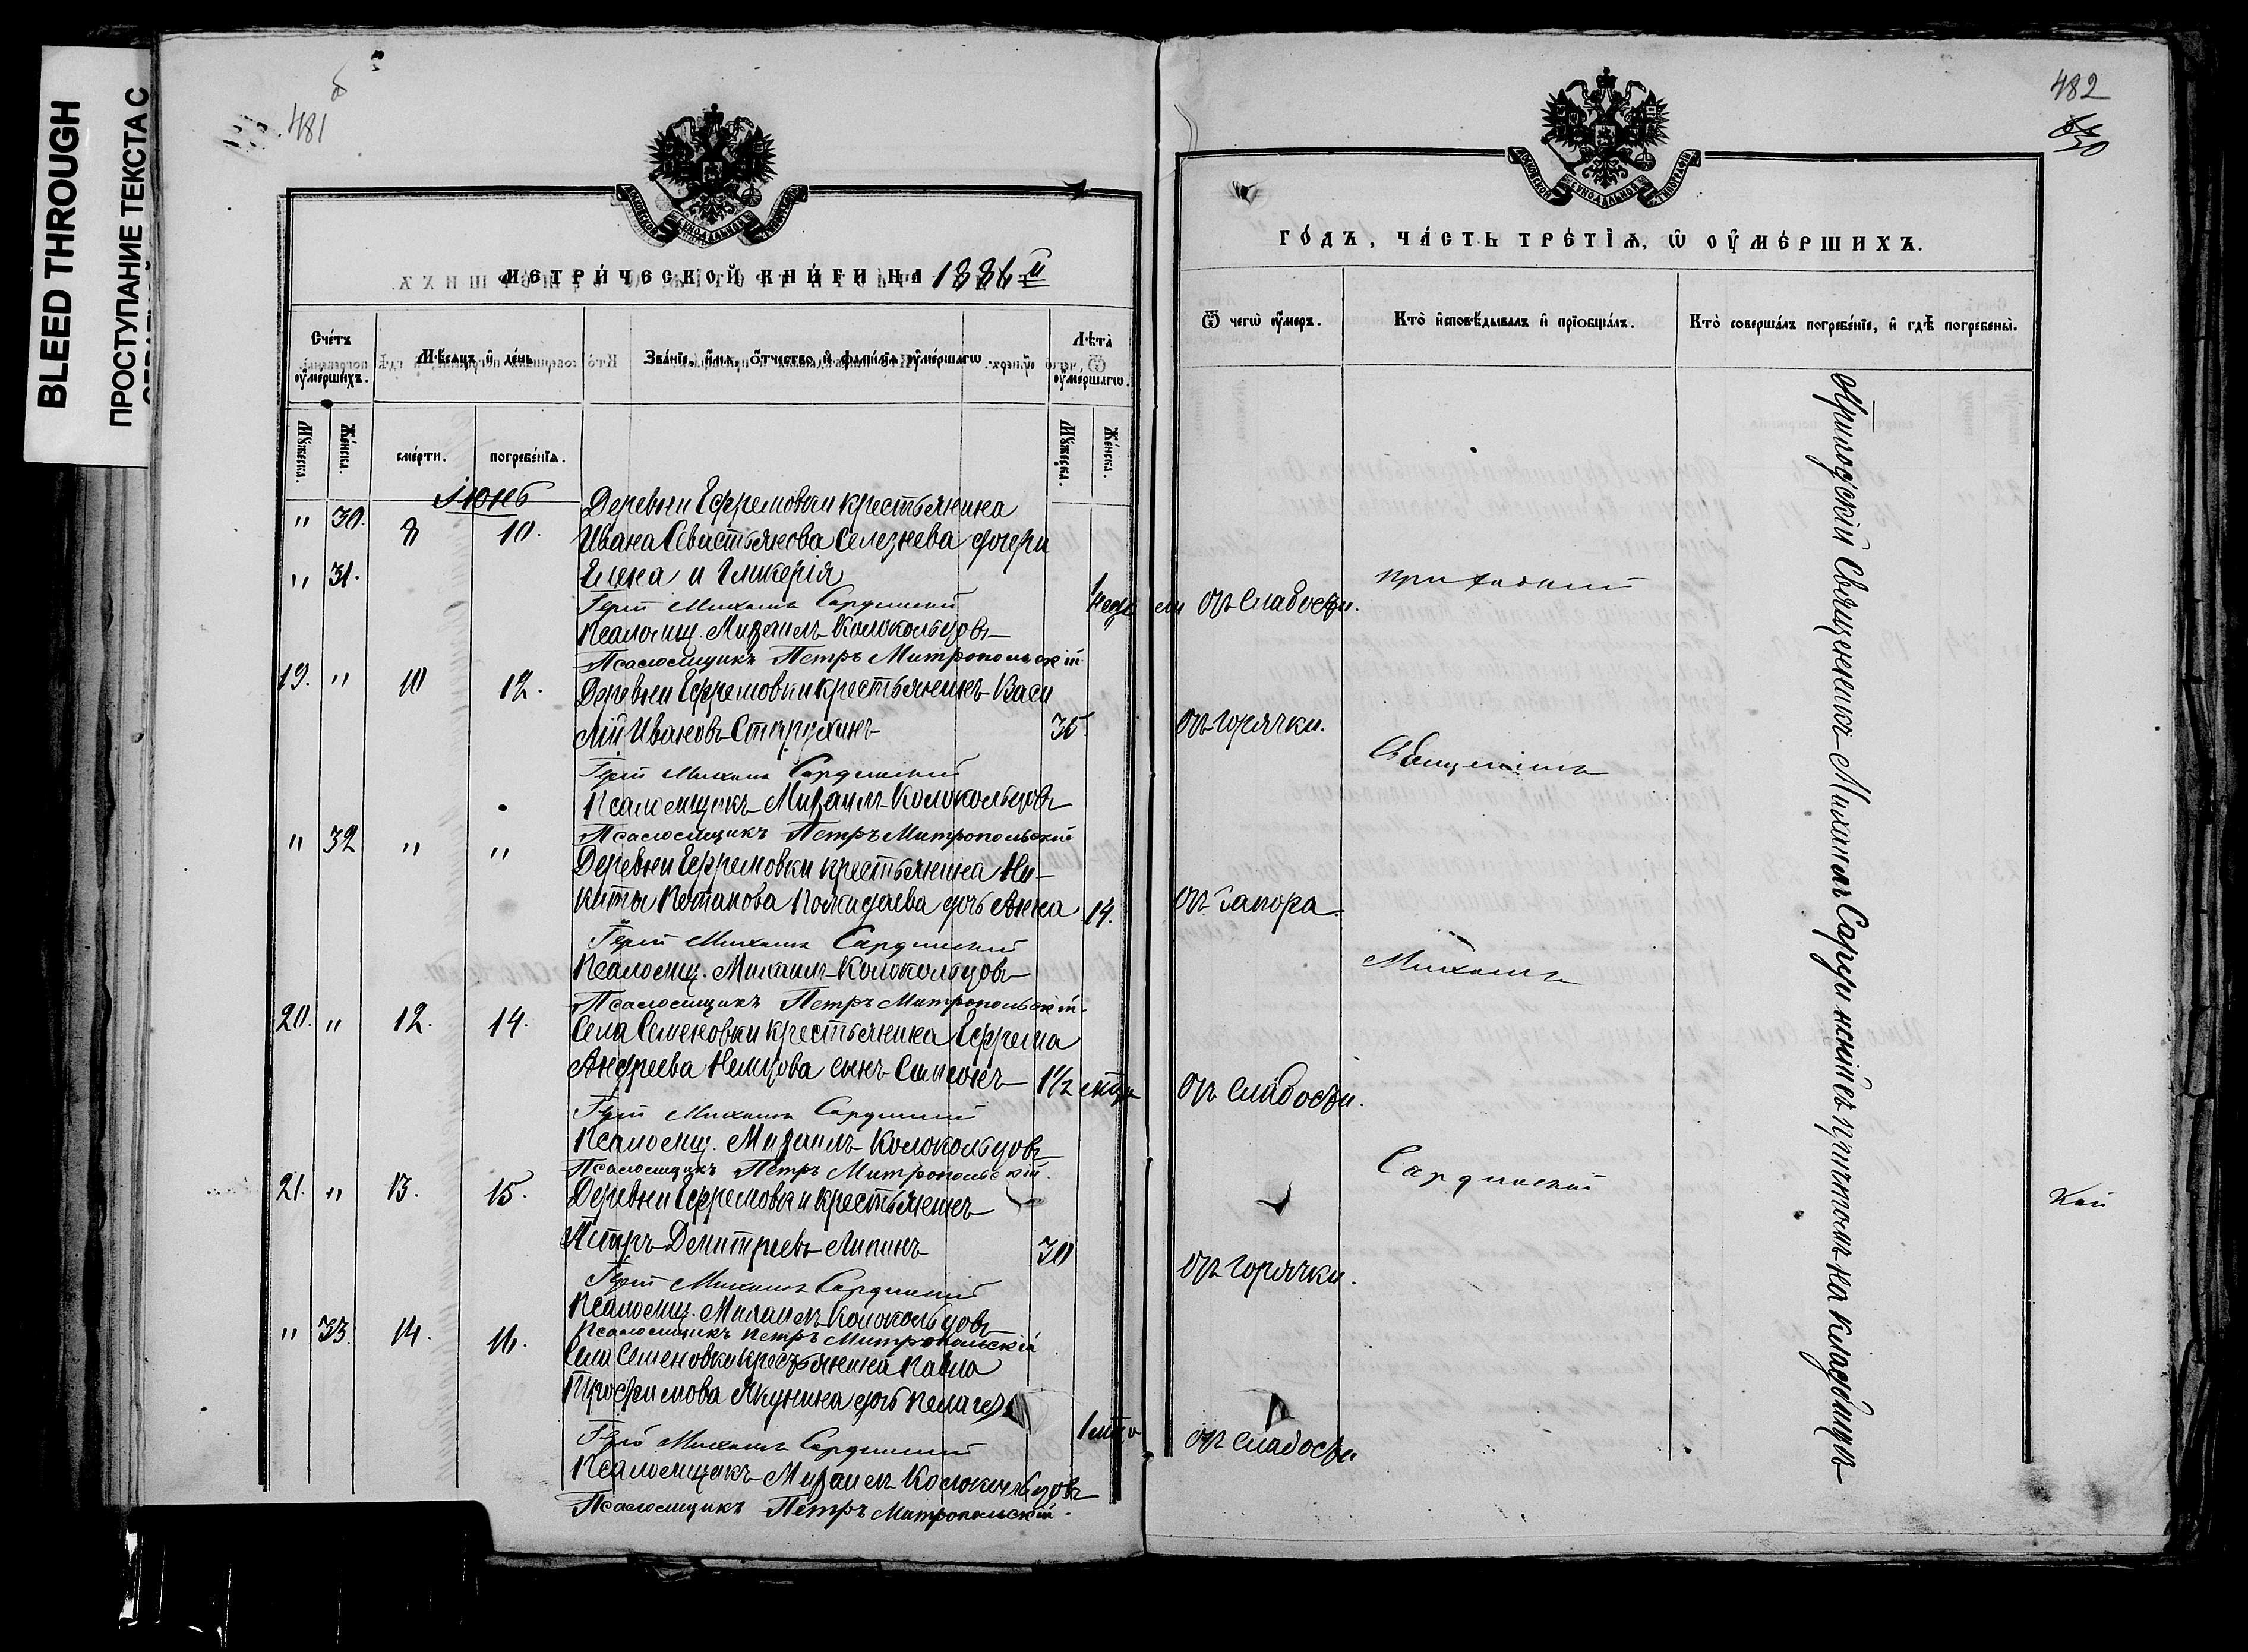 BLEED THROUGH
ПРОСТУПАНИЕ ТЕКСТА С
481
МЕТРИЧЕСКОЙ КНИГИ НА 1886 й
Счетъ умершихъ.
Мѣсяцъ и день
Званіе, имя, отчество и фамилія умершагѡ.
Лѣта умершагѡ.
Мужеска.
Женска.
смерти.
погребенія.
Мужеска.
Женска.
Іюнь
" 30. 8 10. Деревни Ефремовки крестьянина
Ивана Севастьянова Селезнева дочери
" 31. Елена и Гликерія
Іерей Михаилъ Сардинскій
Псаломщ. Михаилъ Колокольцовъ
Псаломщикъ Петръ Митропольскій
19. " 10 12. Деревни Ефремовки крестьянинъ Васи
лій Ивановъ Старухинъ 35.
Іерей Михаилъ Сардинскій
Псаломщикъ Михаилъ Колокольцовъ
Псаломщикъ Петръ Митропольскій
" 32 " " Деревни Ефремовки крестьянина Ни-
киты Потапова Пожидаева дочь Анна 14.
Іерей Михаилъ Сардинскій
Псаломщ. Михаилъ Колокольцовъ
Псаломщикъ Петръ Митропольскій.
20. " 12. 14. Села Семеновки крестьянина Ефрема
Андреева Немцова сынъ Симеонъ 1 1/2
Іерей Михаилъ Сардинскій
Псаломщ. Михаилъ Колокольцовъ
Псаломщикъ Петръ Митропольскій.
21. " 13. 15. Деревни Ефремовки крестьянинъ
Петръ Димитріевъ Липинъ 30
Іерей Михаилъ Сардинскій
Псаломщ. Михаилъ Колокольцовъ
Псаломщикъ Петръ Митропольскій
" 33. 14. 16. Села Семеновки крестьянина Павла
Трофимова Якунина дочь Пелагея
Іерей Михаилъ Сардинскій
Псаломщикъ Михаилъ Колокольцовъ
Псаломщикъ Петръ Митропольскій.
482
50
ГОДЪ, ЧАСТЬ ТРЕТІЯ, Ѡ УМЕРШИХЪ.
Ѿ чегѡ умеръ.
Кто исповѣдывалъ и пріобщалъ.
Кто совершалъ погребеніе, и гдѣ погребены.
отъ слабости.
приходскій
отъ горячки.
Священникъ
отъ запора.
Михаилъ
отъ слабости.
Сардинскій
отъ горячки.
отъ слабости
Приходскій Священникъ Михаилъ Сардинскій съ причтомъ на кладбищѣ
МОСКОВСКОЙ СУНОДАЛЬНОЙ ТИПОГРАФІИ